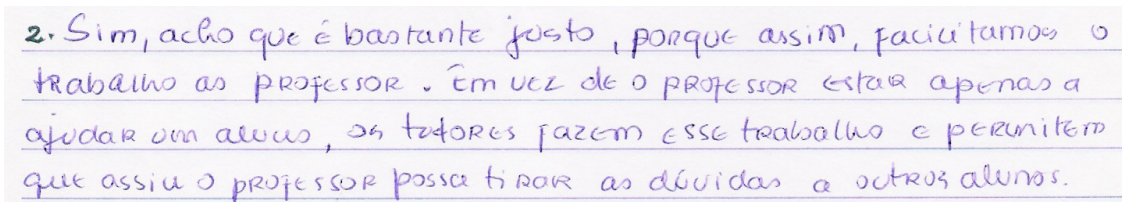 2. Sim, acho que é bastante justo, porque assim, facilitamos o
trabalho ao professor. Em vez de o professor estar apenas a
ajudar um aluno, os tutores fazem esse trabalho e permitem
que assim o professor possa tirar as dúvidas a outros alunos.